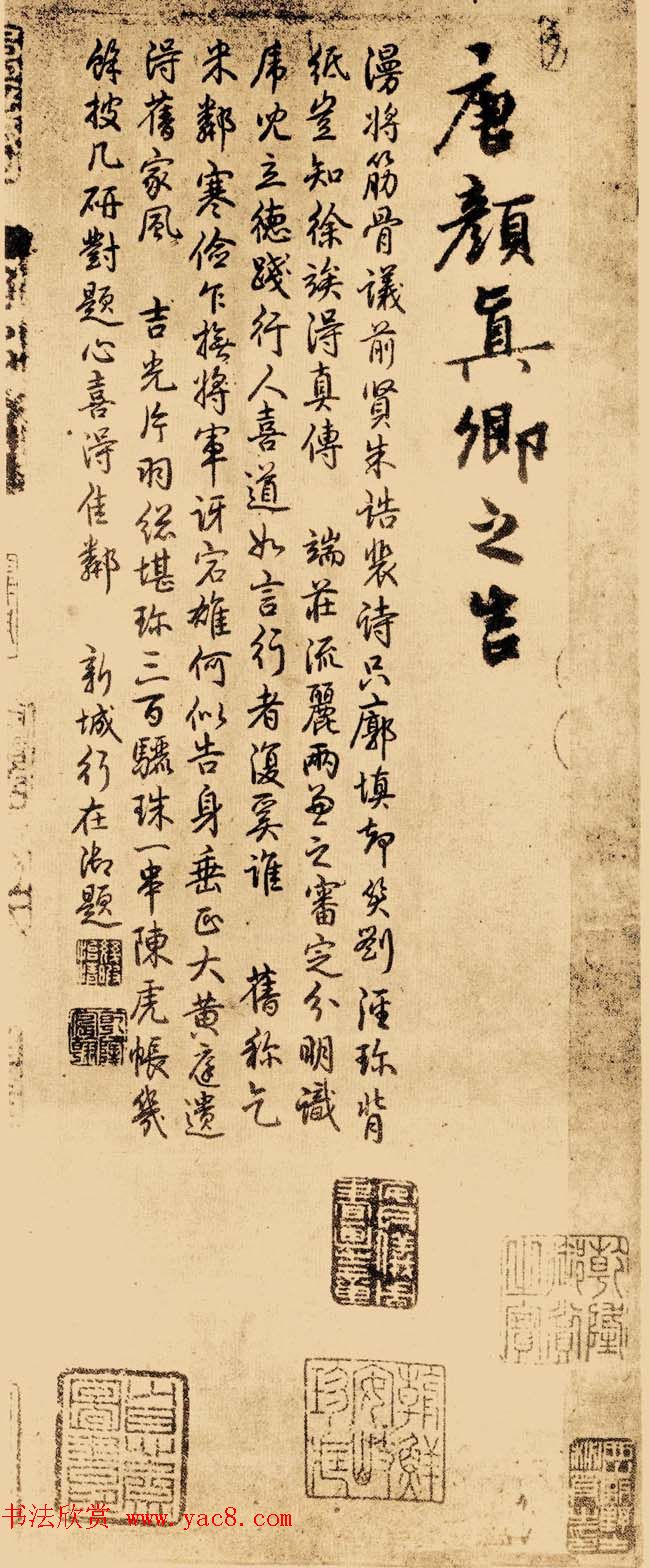 唐顏真卿之告
漫將筋骨議前賢朱誥裴詩只廓填却笑劉涇珎背
紙豈知徐族得真傳 端莊流麗兩兼之審定分明識
虎兒立德踐行人喜道如言行者復奚誰 舊稱乞
米鄰寒儉乍撫將軍訝宕雄何似告身垂正大黃庭遺
得舊家風 吉光片羽總堪珎三百驪珠一串陳虎帳幾
餘披几研對題心喜得佳鄰 新城行在御題
乾隆宸翰
朝鮮安岐珍藏
书法欣赏 www.yac8.com